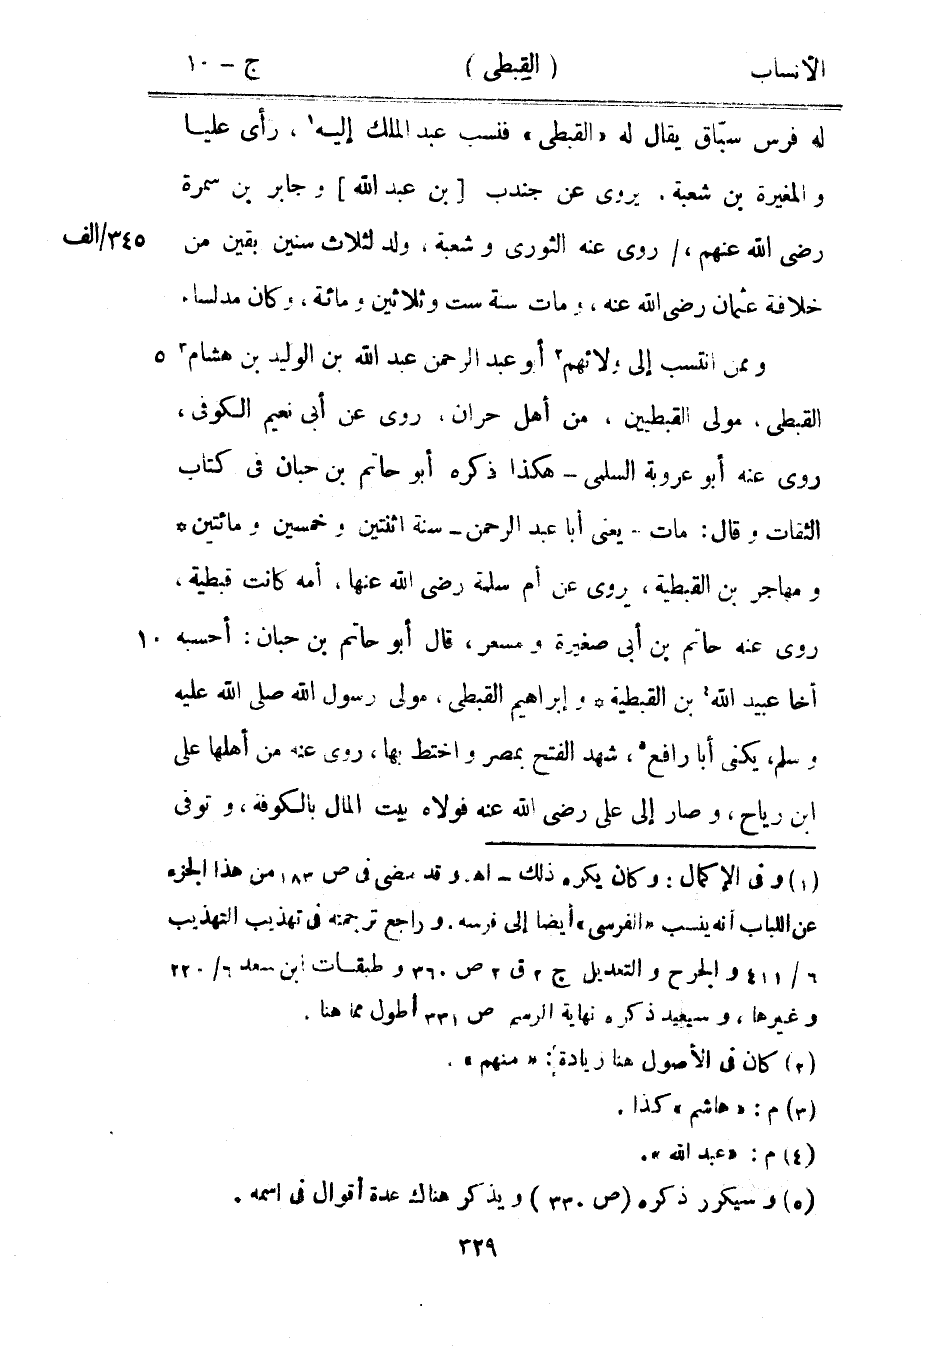 الأنساب ( القبطى ) ج - ١٠
له فرس سبّاق يقال له «القبطى» فنسب عبد الملك إليه١ ، رأى عليا
و المغيرة بن شعبة . يروى عن جندب [ بن عبد الله ] و جابر بن سمرة
رضى الله عنهم ،/ روى عنه الثورى و شعبة ، ولد لثلاث سنين بقين من ٣٤٥/الف
خلافة عثمان رضى الله عنه ، و مات سنة ست و ثلاثين و مائة ، و كان مدلسا .
و ممن انتسب إلى ولائهم٢ أبو عبد الرحمن عبد الله بن الوليد بن هشام٣ ٥
القبطى ، مولى القبطيين ، من أهل حران ، روى عن أبى نعيم الكوفى ،
روى عنه أبو عروبة السلمى – هكذا ذكره أبو حاتم بن حبان فى كتاب
الثقات و قال : مات - يعنى أبا عبد الرحمن – سنة اثنتين و خمسين و مائتين *
و مهاجر بن القبطية ، يروى عن أم سلمة رضى الله عنها ، أمه كانت قبطية ،
روى عنه حاتم بن أبى صغيرة و مسعر ، قال أبو حاتم بن حبان : أحسبه ١٠
أخا عبيد الله٤ بن القبطية * و إبراهيم القبطى ، مولى رسول الله صلى الله عليه
و سلم ، يكنى أبا رافع٥ ، شهد الفتح بمصر و اختط بها ، روى عنه من أهلها على
ابن رياح ، و صار إلى على رضى الله عنه فولاه بيت المال بالكوفة ، و توفى
(١) و فى الإكمال : و كان يكره ذلك – اه . و قد مضى فى ص ١٨٣ من هذا الجزء
عن اللباب أنه ينسب «الفرسى» أيضا إلى فرسه . و راجع ترجمته فى تهذيب التهذيب
٦ / ٤١١ و الجرح و التعديل ج ٢ ق ٢ ص ٣٦٠ و طبقات ابن سعد ٦ / ٢٢٠
و غيرها ، و سيعيد ذكره نهاية الرسم ص ٣٣١ أطول مما هنا .
(٢) كان فى الأصول هنا زيادة : « منهم » .
(٣) م : « هاشم » كذا .
(٤) م : «عبد الله» .
(٥) و سيكرر ذكره (ص ٣٣٠ ) و يذكر هناك عدة أقوال فى اسمه .
٣٢٩